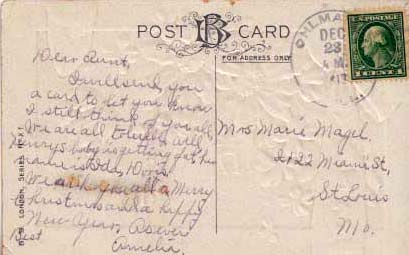 POST CARD
B
FOR ADDRESS ONLY
Dear Aunt,
I will send you
a card to let you know
I still think of you all.
We are all well
Henrys baby is getting fat his
name is 10
We wish you all a Merry
Christmas and a happy
New Year. As ever
Amelia.
LONDON, SERIES
DEC
23
U.S. POSTAGE
1 CENT 1
Mrs Marie Magel,
2122 Miami St,
St Louis
Mo.